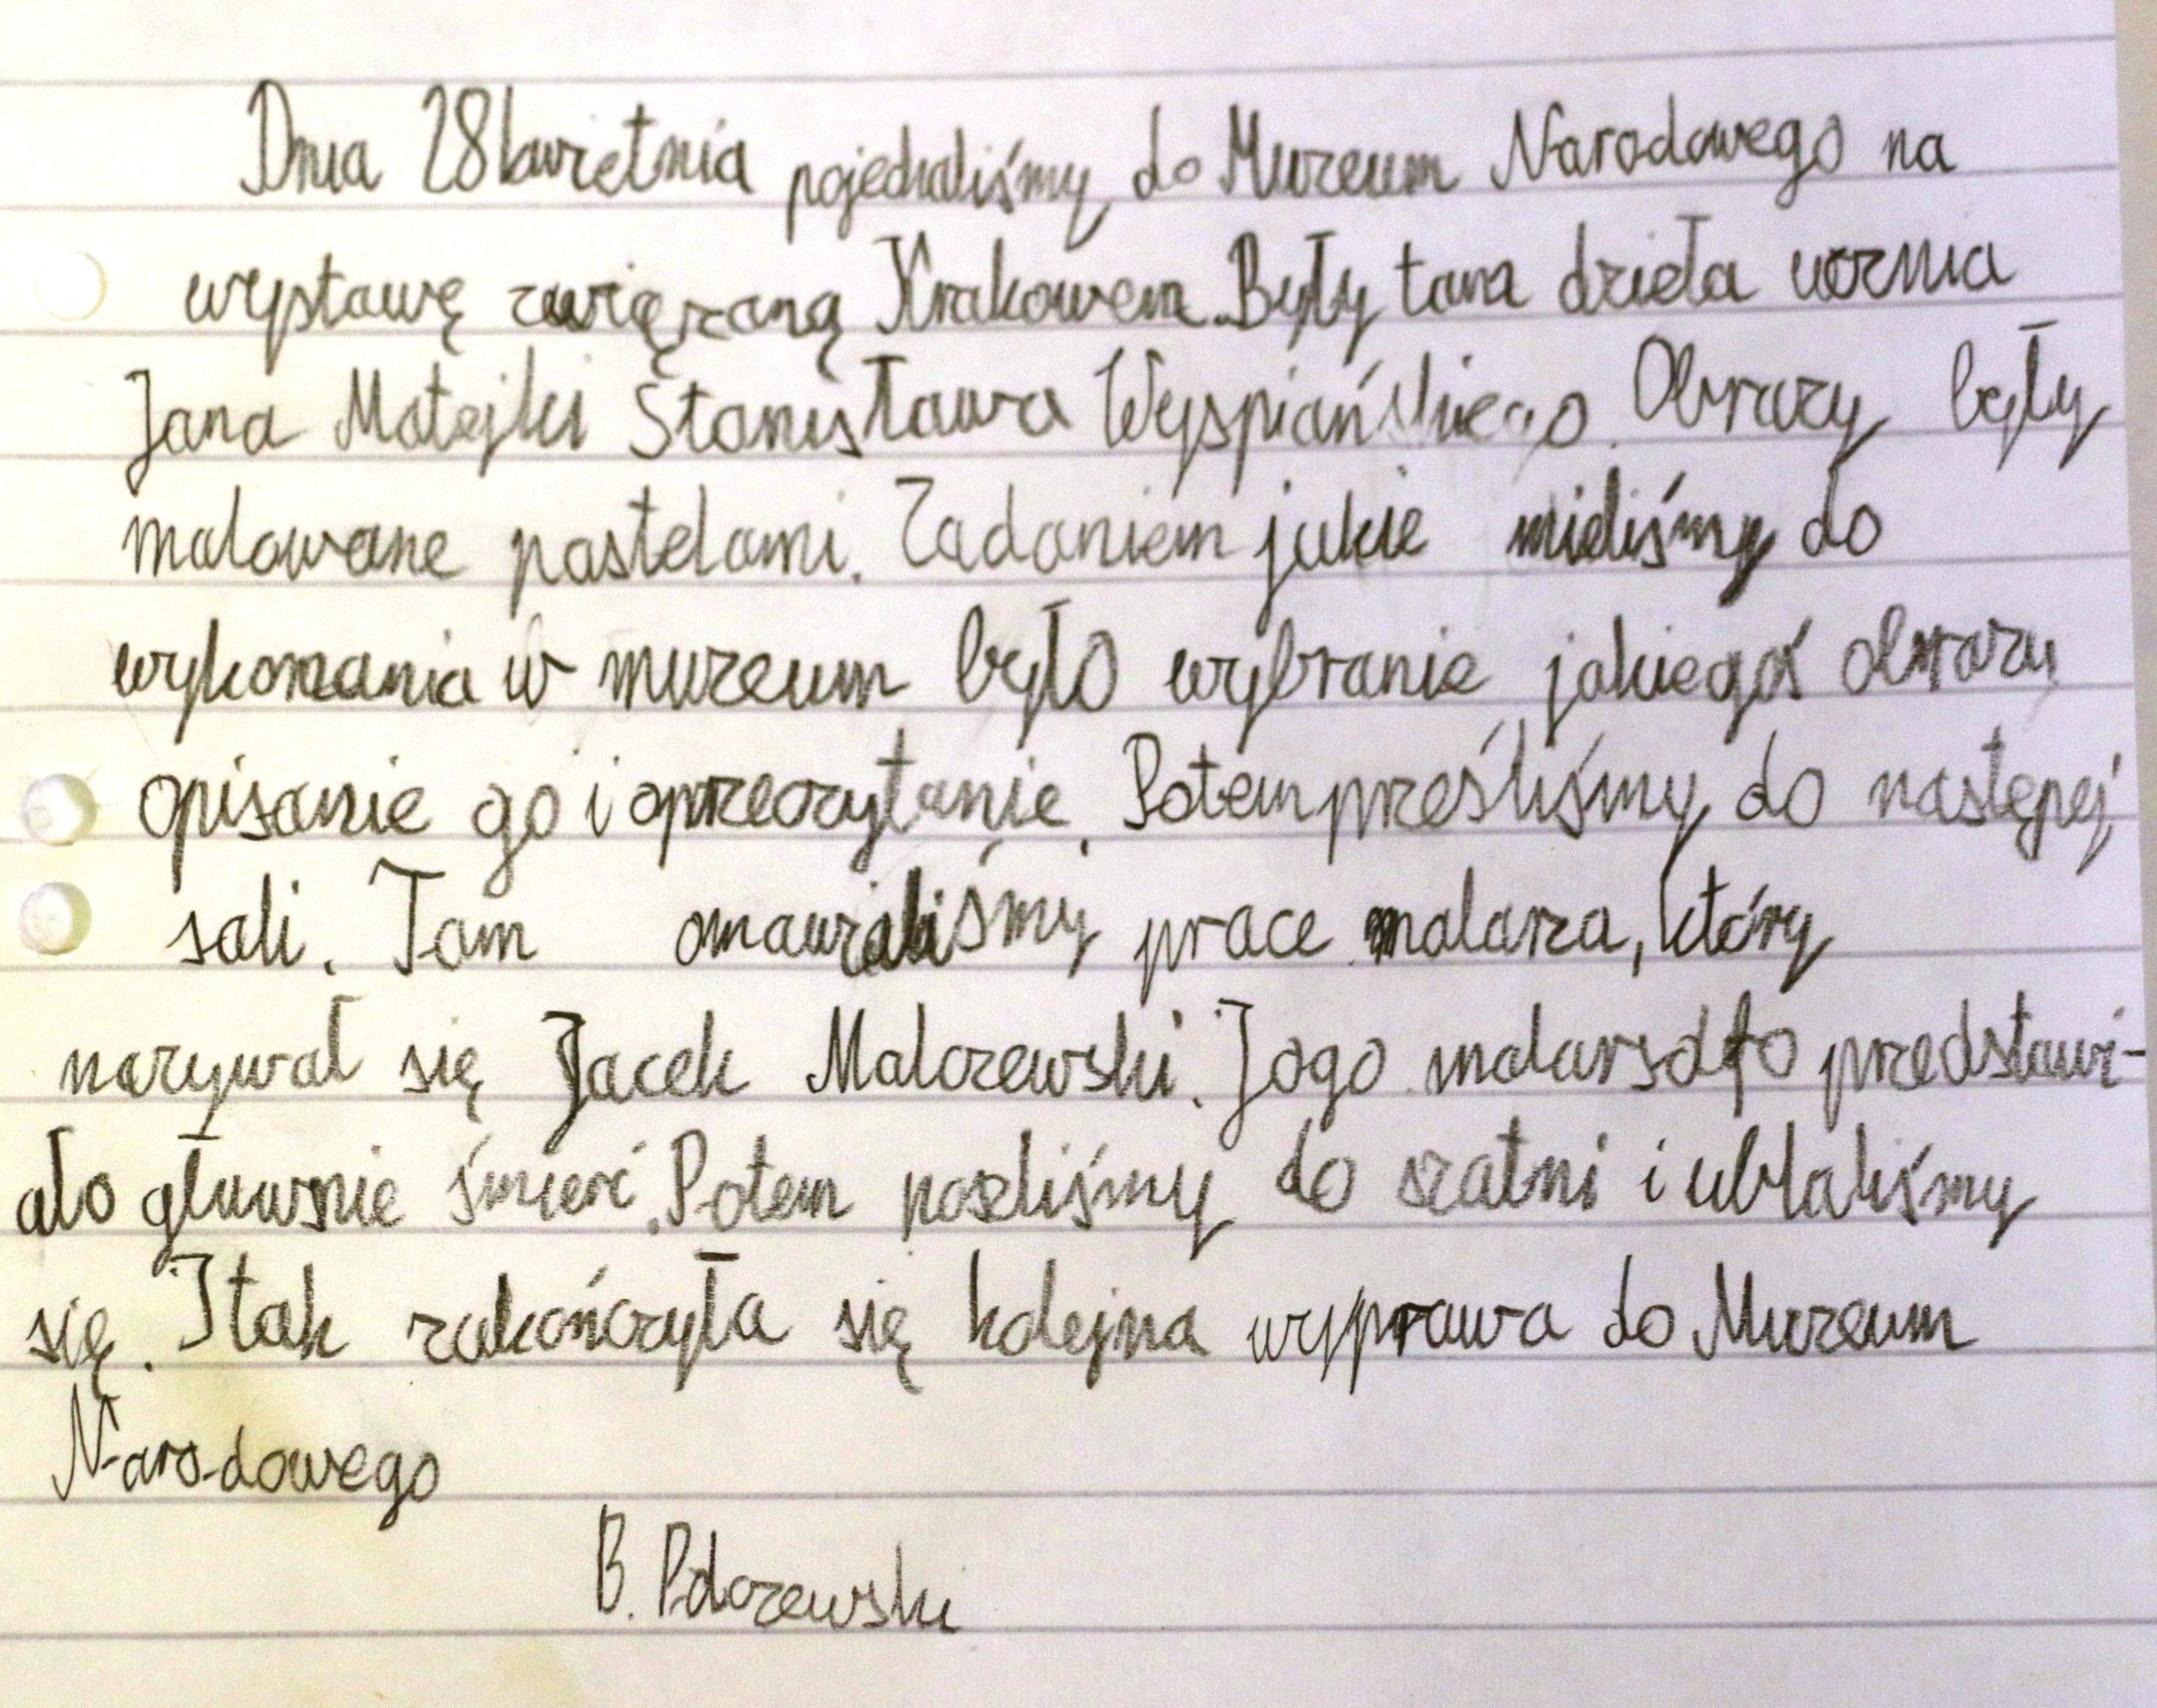 Dnia 28 kwietnia pojechaliśmy do Muzeum Narodowego na
wystawę związaną Krakowem. Były tam dzieła ucznia
Jana Matejki Stanisława Wyspiańskiego. Obrazy były
malowane pastelami. Zadaniem jakie mieliśmy do
wykonania w muzeum było wybranie jakiegoś obrazu
opisanie go i oprzeczytanie. Potem prześliśmy do następej
sali. Tam omawialiśmy prace malarza, który
nazywał się Jacek Malczewski. Jogo malarsdło przedstawi-
ało głuwnie śmierć. Potem poszliśmy do szatni i ubraliśmy
się. I tak zakończyła się kolejna wyprawa do Muzeum
Narodowego
B. Polczewski